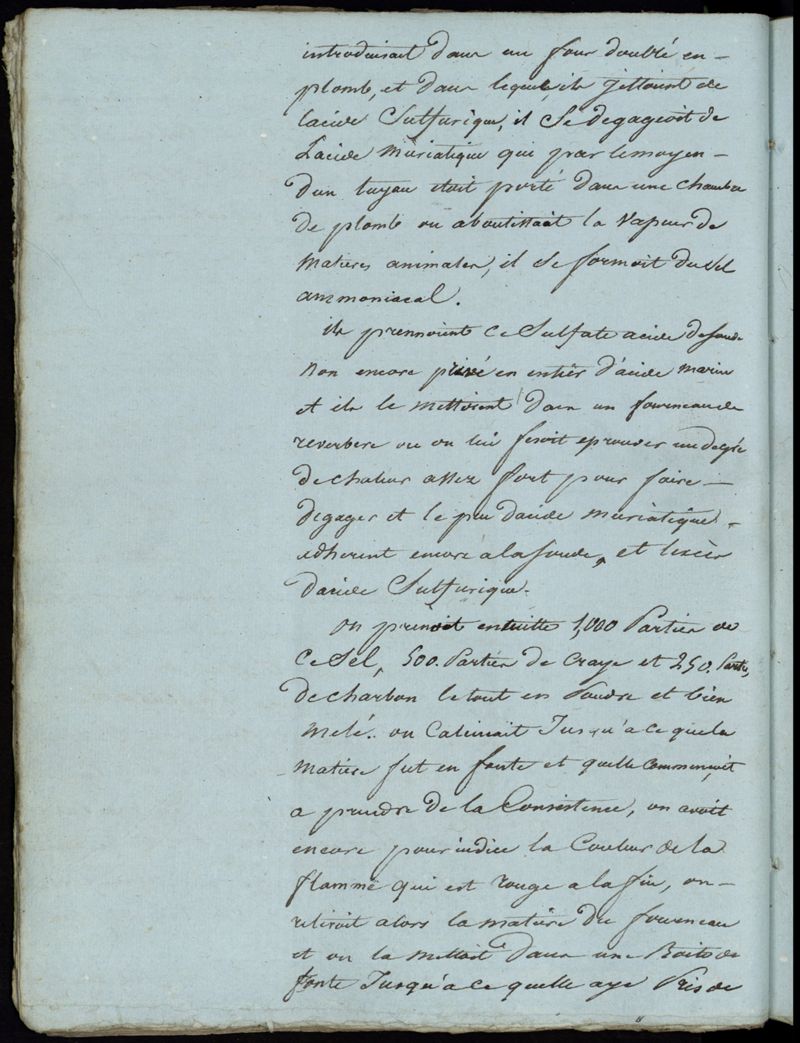 introduisait dans un four doublé en –
plomb, et dans lequel, ils jettoient de
lacide Sulfurique, il Se degageoit de
Lacide Muriatique qui par lemoyen –
dun tuyau étoit porté dans une chambre
de plomb ou aboutissait la Vapeur de
Matieres animales, il se formoit du Sel
ammoniacal.
ils prennoient ce Sulfate acide desoude
Non encore privé en entièr d'acide marin
et ils le mettoient dans un fourneau de
reverbere ou on lui fesoit eprouver un degré
de chaleur assez fort pour faire –
degager et le peu dacide muriatique –
adherent encore a la soude, et lexcès
dacide Sulfurique.
on prenoit ensuitte 1,000 Parties de
Ce Sel, 500. Parties de craye et 250. Parties,
de charbon le tout en Poudre et bien
Melé. on Calcinait Jusqu'a ce quela
Matière fut en fonte et quelle commençoit
a prendre de la Consistence, on avoit
encore pour indice la Couleur de la
flamme qui est rouge a la fin, on –
retiroit alors la matière du fourneau
et on la mettoit dans une Boite de
fonte Jusqu'a ce quelle aye Pris de